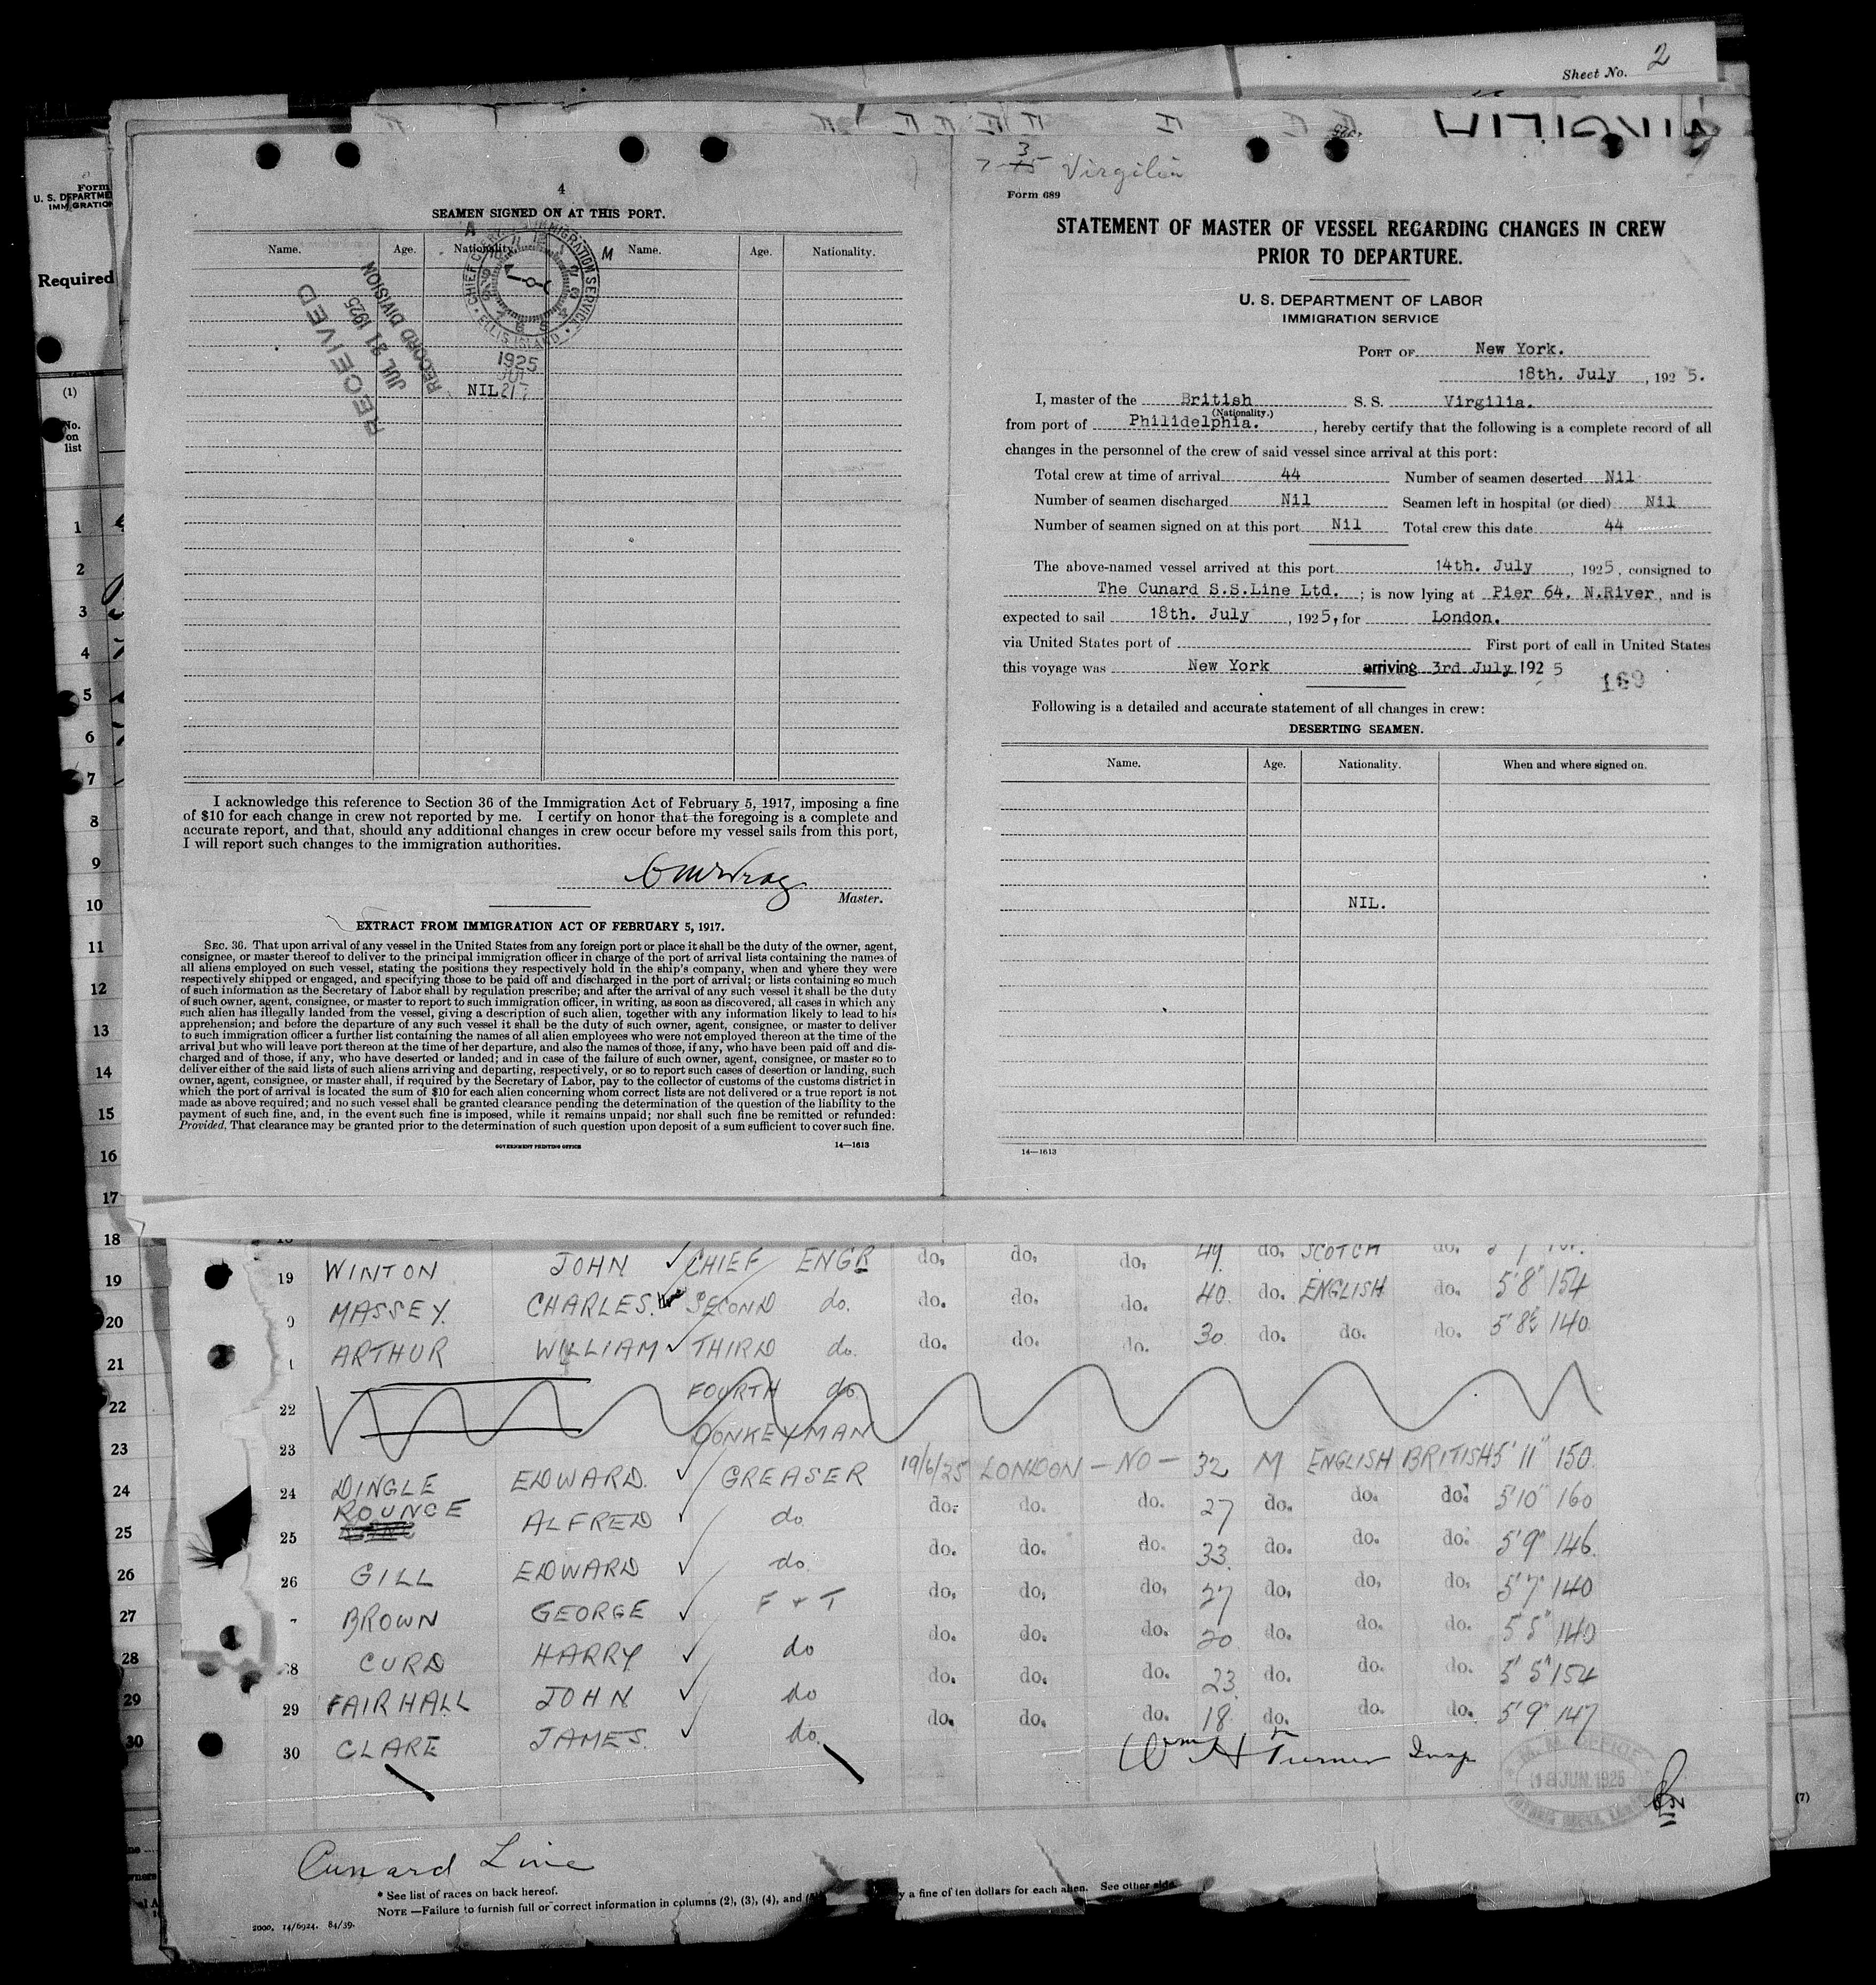 Sheet No. 2
VIRGILIA
Form
U. S. DEPARTME
IMMIGRATION
Required
(1)
No.
on
list
1
2
3
4
5
6
7
8
9
10
11
12
13
14
15
16
17
18
19
20
21
22
23
24
25
26
27
28
29
30
4
SEAMEN SIGNED ON AT THIS PORT.
Name. Age. Nationality. Name. Age. Nationality.
A M
IMMIGRATION SERVICE
ELLIS ISLAND
1925
JUL
217
RECEIVED
JUL 21 1925
RECORD DIVISION
NIL
I acknowledge this reference to Section 36 of the Immigration Act of February 5, 1917, imposing a fine
of $10 for each change in crew not reported by me. I certify on honor that the foregoing is a complete and
accurate report, and that, should any additional changes in crew occur before my vessel sails from this port,
I will report such changes to the immigration authorities.
Master.
EXTRACT FROM IMMIGRATION ACT OF FEBRUARY 5, 1917.
SEC. 36. That upon arrival of any vessel in the United States from any foreign port or place it shall be the duty of the owner, agent,
consignee, or master thereof to deliver to the principal immigration officer in charge of the port of arrival lists containing the names of
all aliens employed on such vessel, stating the positions they respectively hold in the ship's company, when and where they were
respectively shipped or engaged, and specifying those to be paid off and discharged in the port of arrival; or lists containing so much
of such information as the Secretary of Labor shall by regulation prescribe; and after the arrival of any such vessel it shall be the duty
of such owner, agent, consignee, or master to report to such immigration officer, in writing, as soon as discovered, all cases in which any
such alien has illegally landed from the vessel, giving a description of such alien, together with any information likely to lead to his
apprehension; and before the departure of any such vessel it shall be the duty of such owner, agent, consignee, or master to deliver
to such immigration officer a further list containing the names of all alien employees who were not employed thereon at the time of the
arrival but who will leave port thereon at the time of her departure, and also the names of those, if any, who have been paid off and dis-
charged and of those, if any, who have deserted or landed; and in case of the failure of such owner, agent, consignee, or master so to
deliver either of the said lists of such aliens arriving and departing, respectively, or so to report such cases of desertion or landing, such
owner, agent, consignee, or master shall, if required by the Secretary of Labor, pay to the collector of customs of the customs district in
which the port of arrival is located the sum of $10 for each alien concerning whom correct lists are not delivered or a true report is not
made as above required; and no such vessel shall be granted clearance pending the determination of the question of the liability to the
payment of such fine, and, in the event such fine is imposed, while it remains unpaid; nor shall such fine be remitted or refunded:
Provided, That clearance may be granted prior to the determination of such question upon deposit of a sum sufficient to cover such fine.
GOVERNMENT PRINTING OFFICE 14—1613
7 3 15 Virgilia
Form 689
STATEMENT OF MASTER OF VESSEL REGARDING CHANGES IN CREW
PRIOR TO DEPARTURE.
U. S. DEPARTMENT OF LABOR
IMMIGRATION SERVICE
PORT OF New York.
18th. July, 1925.
I, master of the British S.S. Virgilia.
(Nationality.)
from port of Philidelphia., hereby certify that the following is a complete record of all
changes in the personnel of the crew of said vessel since arrival at this port:
Total crew at time of arrival 44 Number of seamen deserted Nil
Number of seamen discharged Nil Seamen left in hospital (or died) Nil
Number of seamen signed on at this port Nil Total crew this date 44
The above-named vessel arrived at this port 14th. July, 1925, consigned to
The Cunard S.S.Line Ltd.; is now lying at Pier 64. N.River, and is
expected to sail 18th. July, 1925, for London.
via United States port of First port of call in United States
this voyage was New York arriving 3rd July 1925
169
Following is a detailed and accurate statement of all changes in crew:
DESERTING SEAMEN.
Name. Age. Nationality. When and where signed on.
NIL.
14—1613
19 WINTON JOHN CHIEF ENGR do. do. do. 49 do. SCOTCH do.
MASSEY. CHARLES. SECOND do. do. do. do. 40 do. ENGLISH do. 5'8" 154
ARTHUR WILLIAM THIRD do. do. do. do. 30 do. do. do. 5'8½ 140
22 FOURTH do
23 DONKEYMAN
24 DINGLE EDWARD. GREASER 19/6/25 LONDON —NO— 32 M ENGLISH BRITISH 5'11" 150
25 ROUNCE ALFRED do do. do. do. 27 do. do. do. 5'10" 160
26 GILL EDWARD do. do. do. do. 33 do. do. do. 5'9" 146.
BROWN GEORGE F & T do. do. do. 27 do. do. do. 5'7" 140
28 CURD HARRY do do. do. do. 20 do. do. do. 5'5" 140
29 FAIRHALL JOHN do do. do. do. 23 do. do. do. 5'5" 154
30 CLARE JAMES. do. do. do. do. 18 do. do. do. 5'9" 147
Wm H Turner Insp
M. M. OFFICE
18 JUN. 1925
(7)
Cunard Line
* See list of races on back hereof.
NOTE —Failure to furnish full or correct information in columns (2), (3), (4), and y a fine of ten dollars for each alien. See other side.
2000. 14/6924. 84/39.